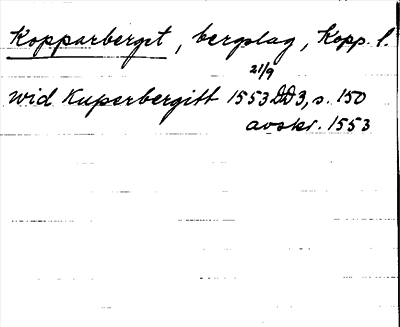 Kopparberget, bergslag, Kopp. l.
21/9
wid Kuperbergitt 1553 DD3, s. 150
avskr. 1553